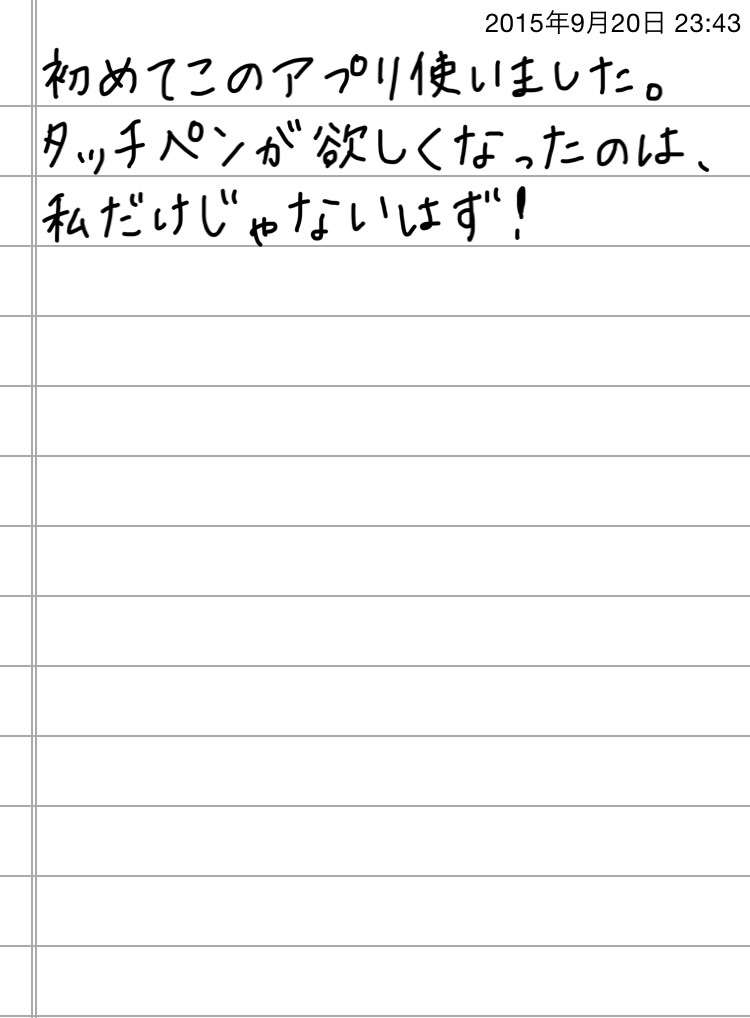 2015年9月20日 23:43
初めてこのアプリ使いました。
タッチペンが欲しくなったのは、
私だけじゃないはず!